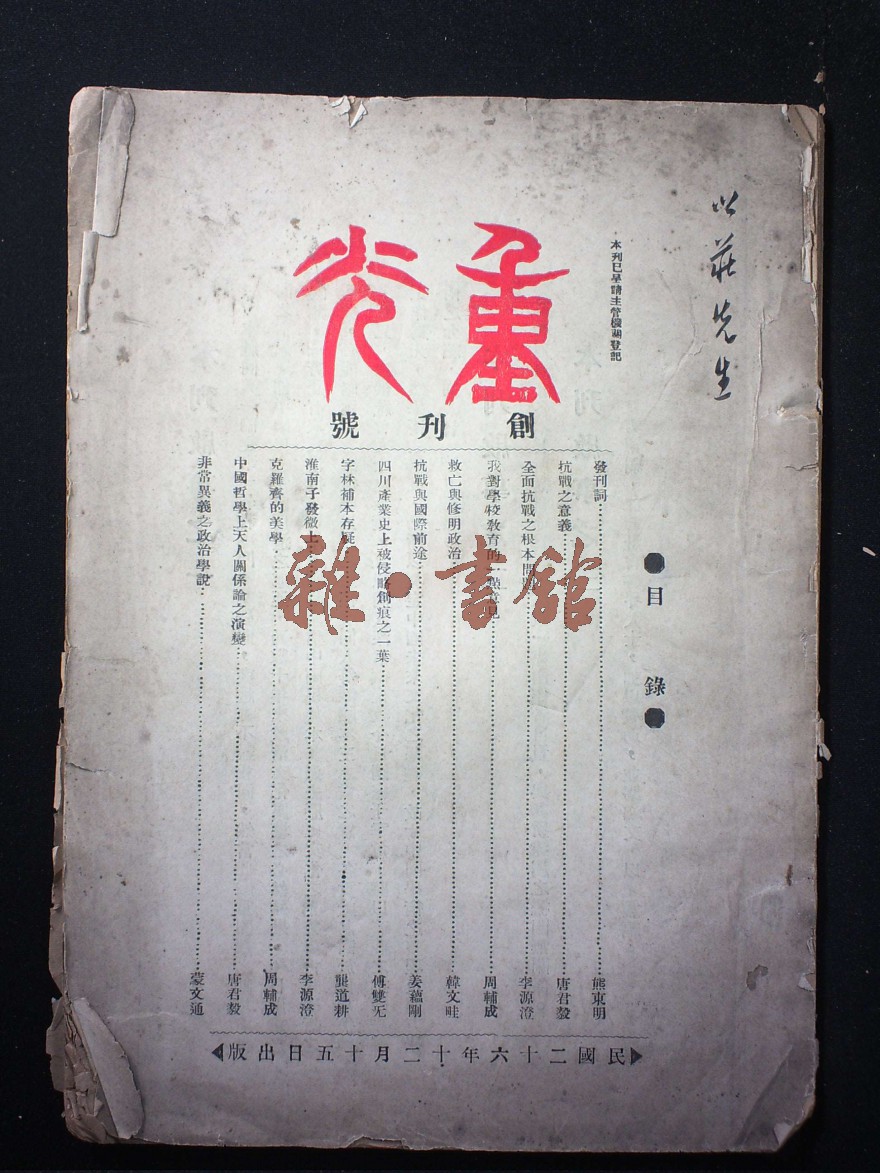 以莊先生
本刊已呈請主管機關登記
重光
創刊號
●目錄●
發刊詞……熊東明
抗戰之意義……唐君毅
全面抗戰之根本問……李源澄
我對學校教育的一點意見……周輔成
救亡與修明政治……韓文畦
抗戰與國際前途……姜蘊剛
四川產業史上被侵略創痕之一葉……傅雙无
字林補本存疑……龔道耕
淮南子發微上……李源澄
克羅齊的美學……周輔成
中國哲學上天人關係論之演變……唐君毅
非常異義之政治學說……蒙文通
民國二十六年十二月十五日出版
雜·書館